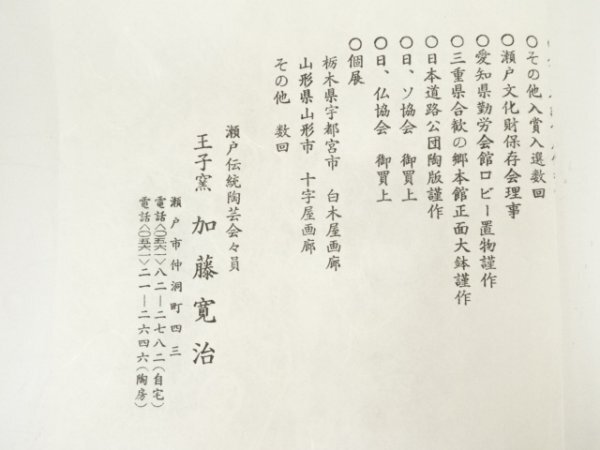 ○その他入賞入選数回
○瀬戸文化財保存会理事
○愛知県勤労会館ロビー置物謹作
○三重県合歓の郷本館正面大鉢謹作
○日本道路公団陶版謹作
○日、ソ協会　御買上
○日、仏協会　御買上
○個展
栃木県宇都宮市　白木屋画廊
山形県山形市　十字屋画廊
その他　数回
瀬戸伝統陶芸会々員
王子窯　加藤寛治
瀬戸市仲洞町四三
電話〈〇五六一〉八二―二七八二(自宅)
電話〈〇五六一〉二一―二六四六(陶房)